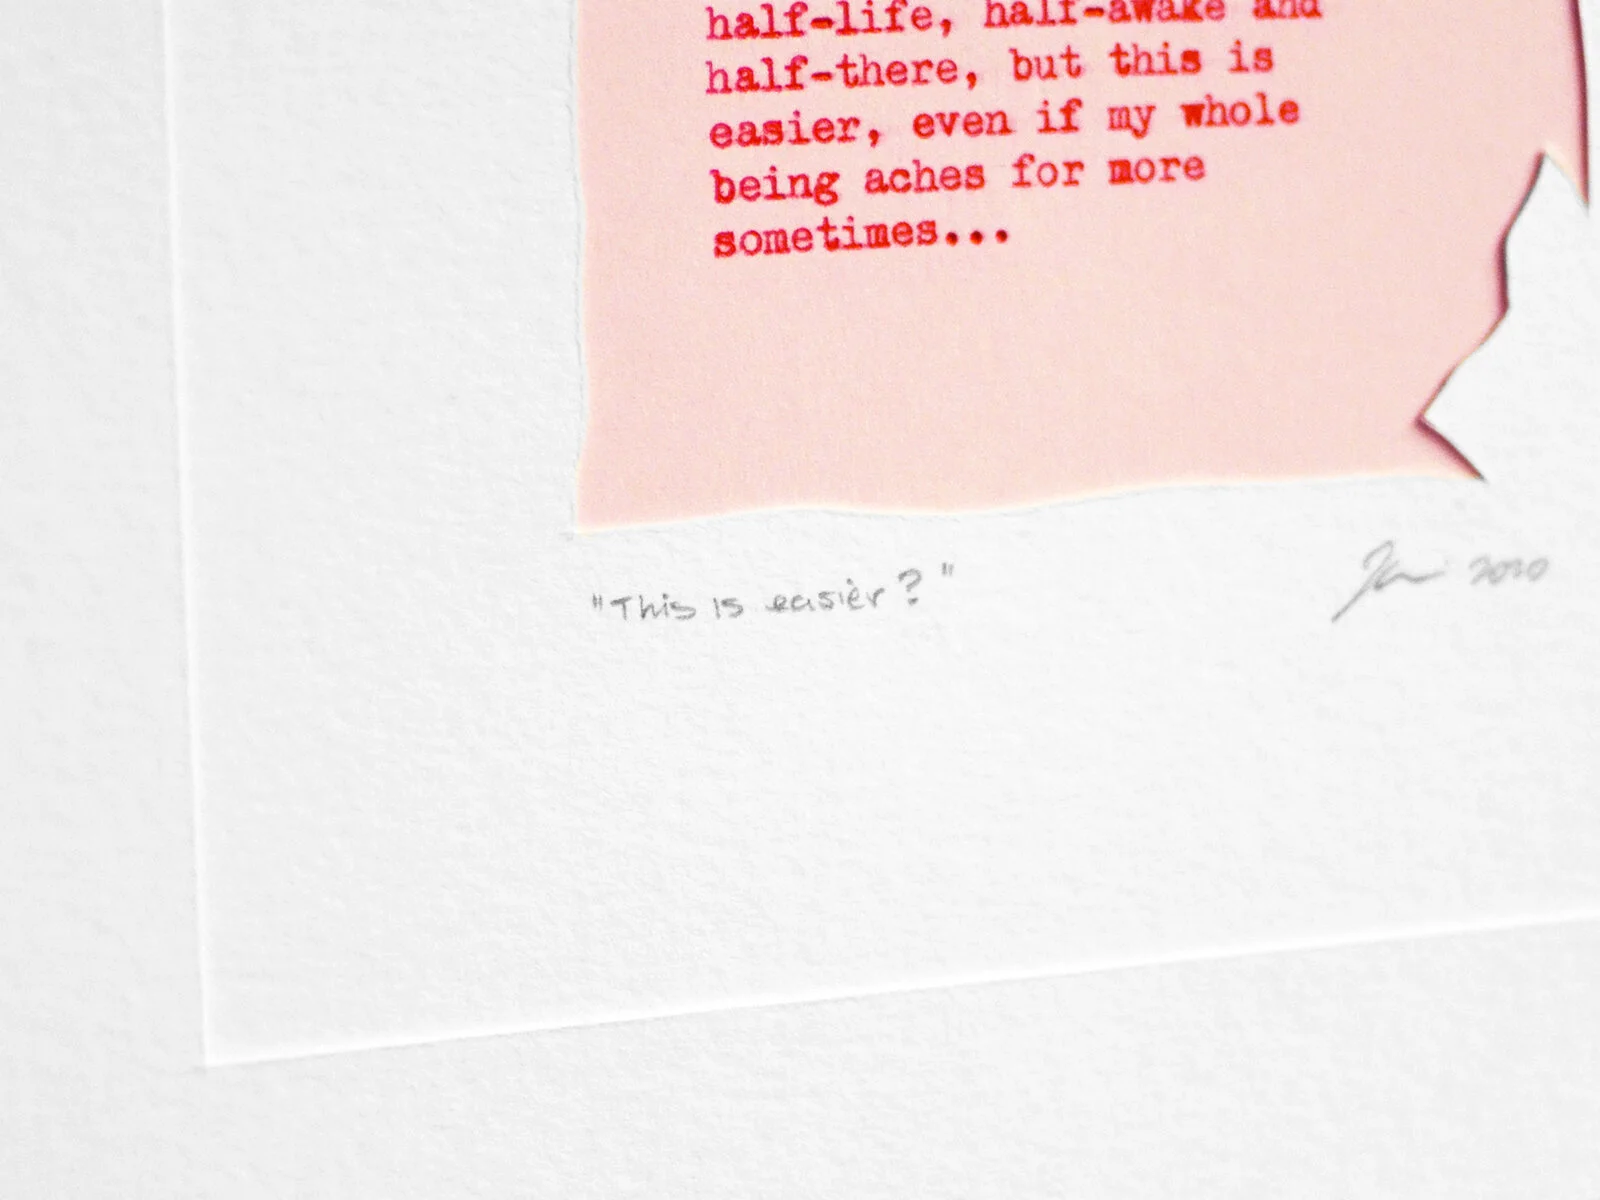 half-life, half-awake and
half-there, but this is
easier, even if my whole
being aches for more
sometimes...
"This is easier?"
2020